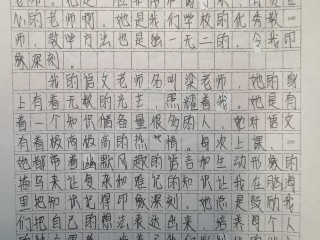 心的老师啊，她是我们学校的优秀教
师，教学方法也是独一无二的，令我印
象深刻。
我的语文老师名叫梁老师，她的身
上有着无数的光芒，照耀着我。她是有
着一个知识储备量很多的人，她对语文
有着极高极高的热情。每次上课，
她都带着幽默风趣的语言和生动形象的
描写来让复杂和难记的知识让我在脑海
里把知识记得印象深刻。她总是鼓励我
们把自己的想法表达出来，培养每个人